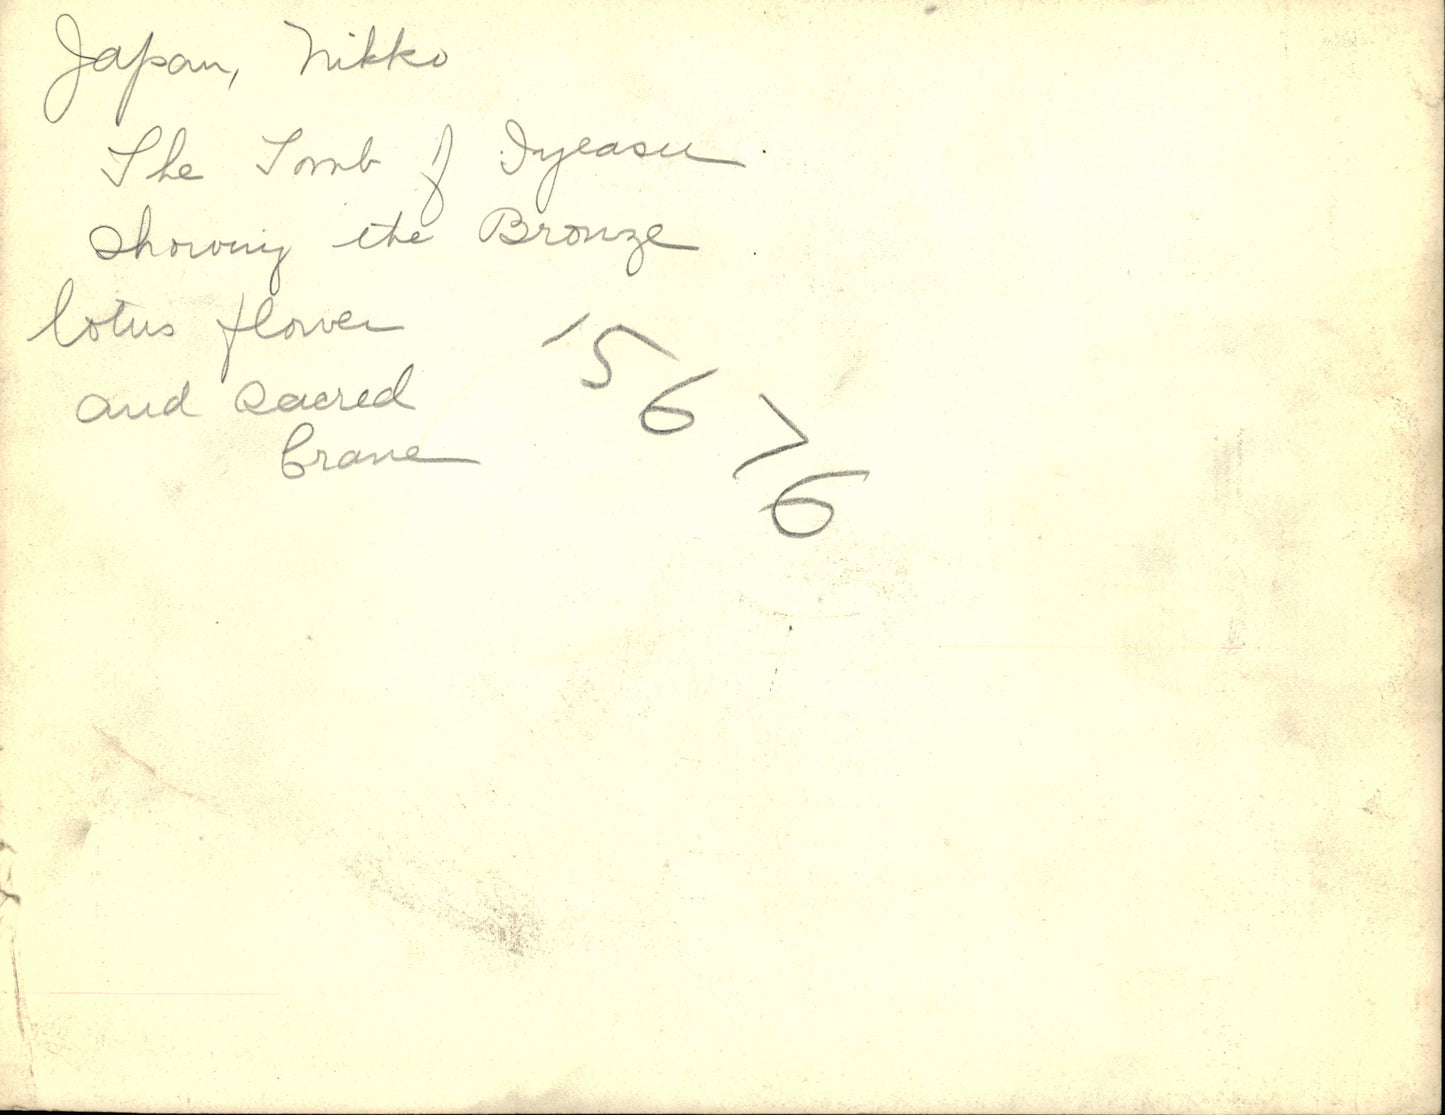 Japan, Nikko
The Tomb of Iyeasu
showing the Bronze
lotus flower
and sacred
Crane
15676